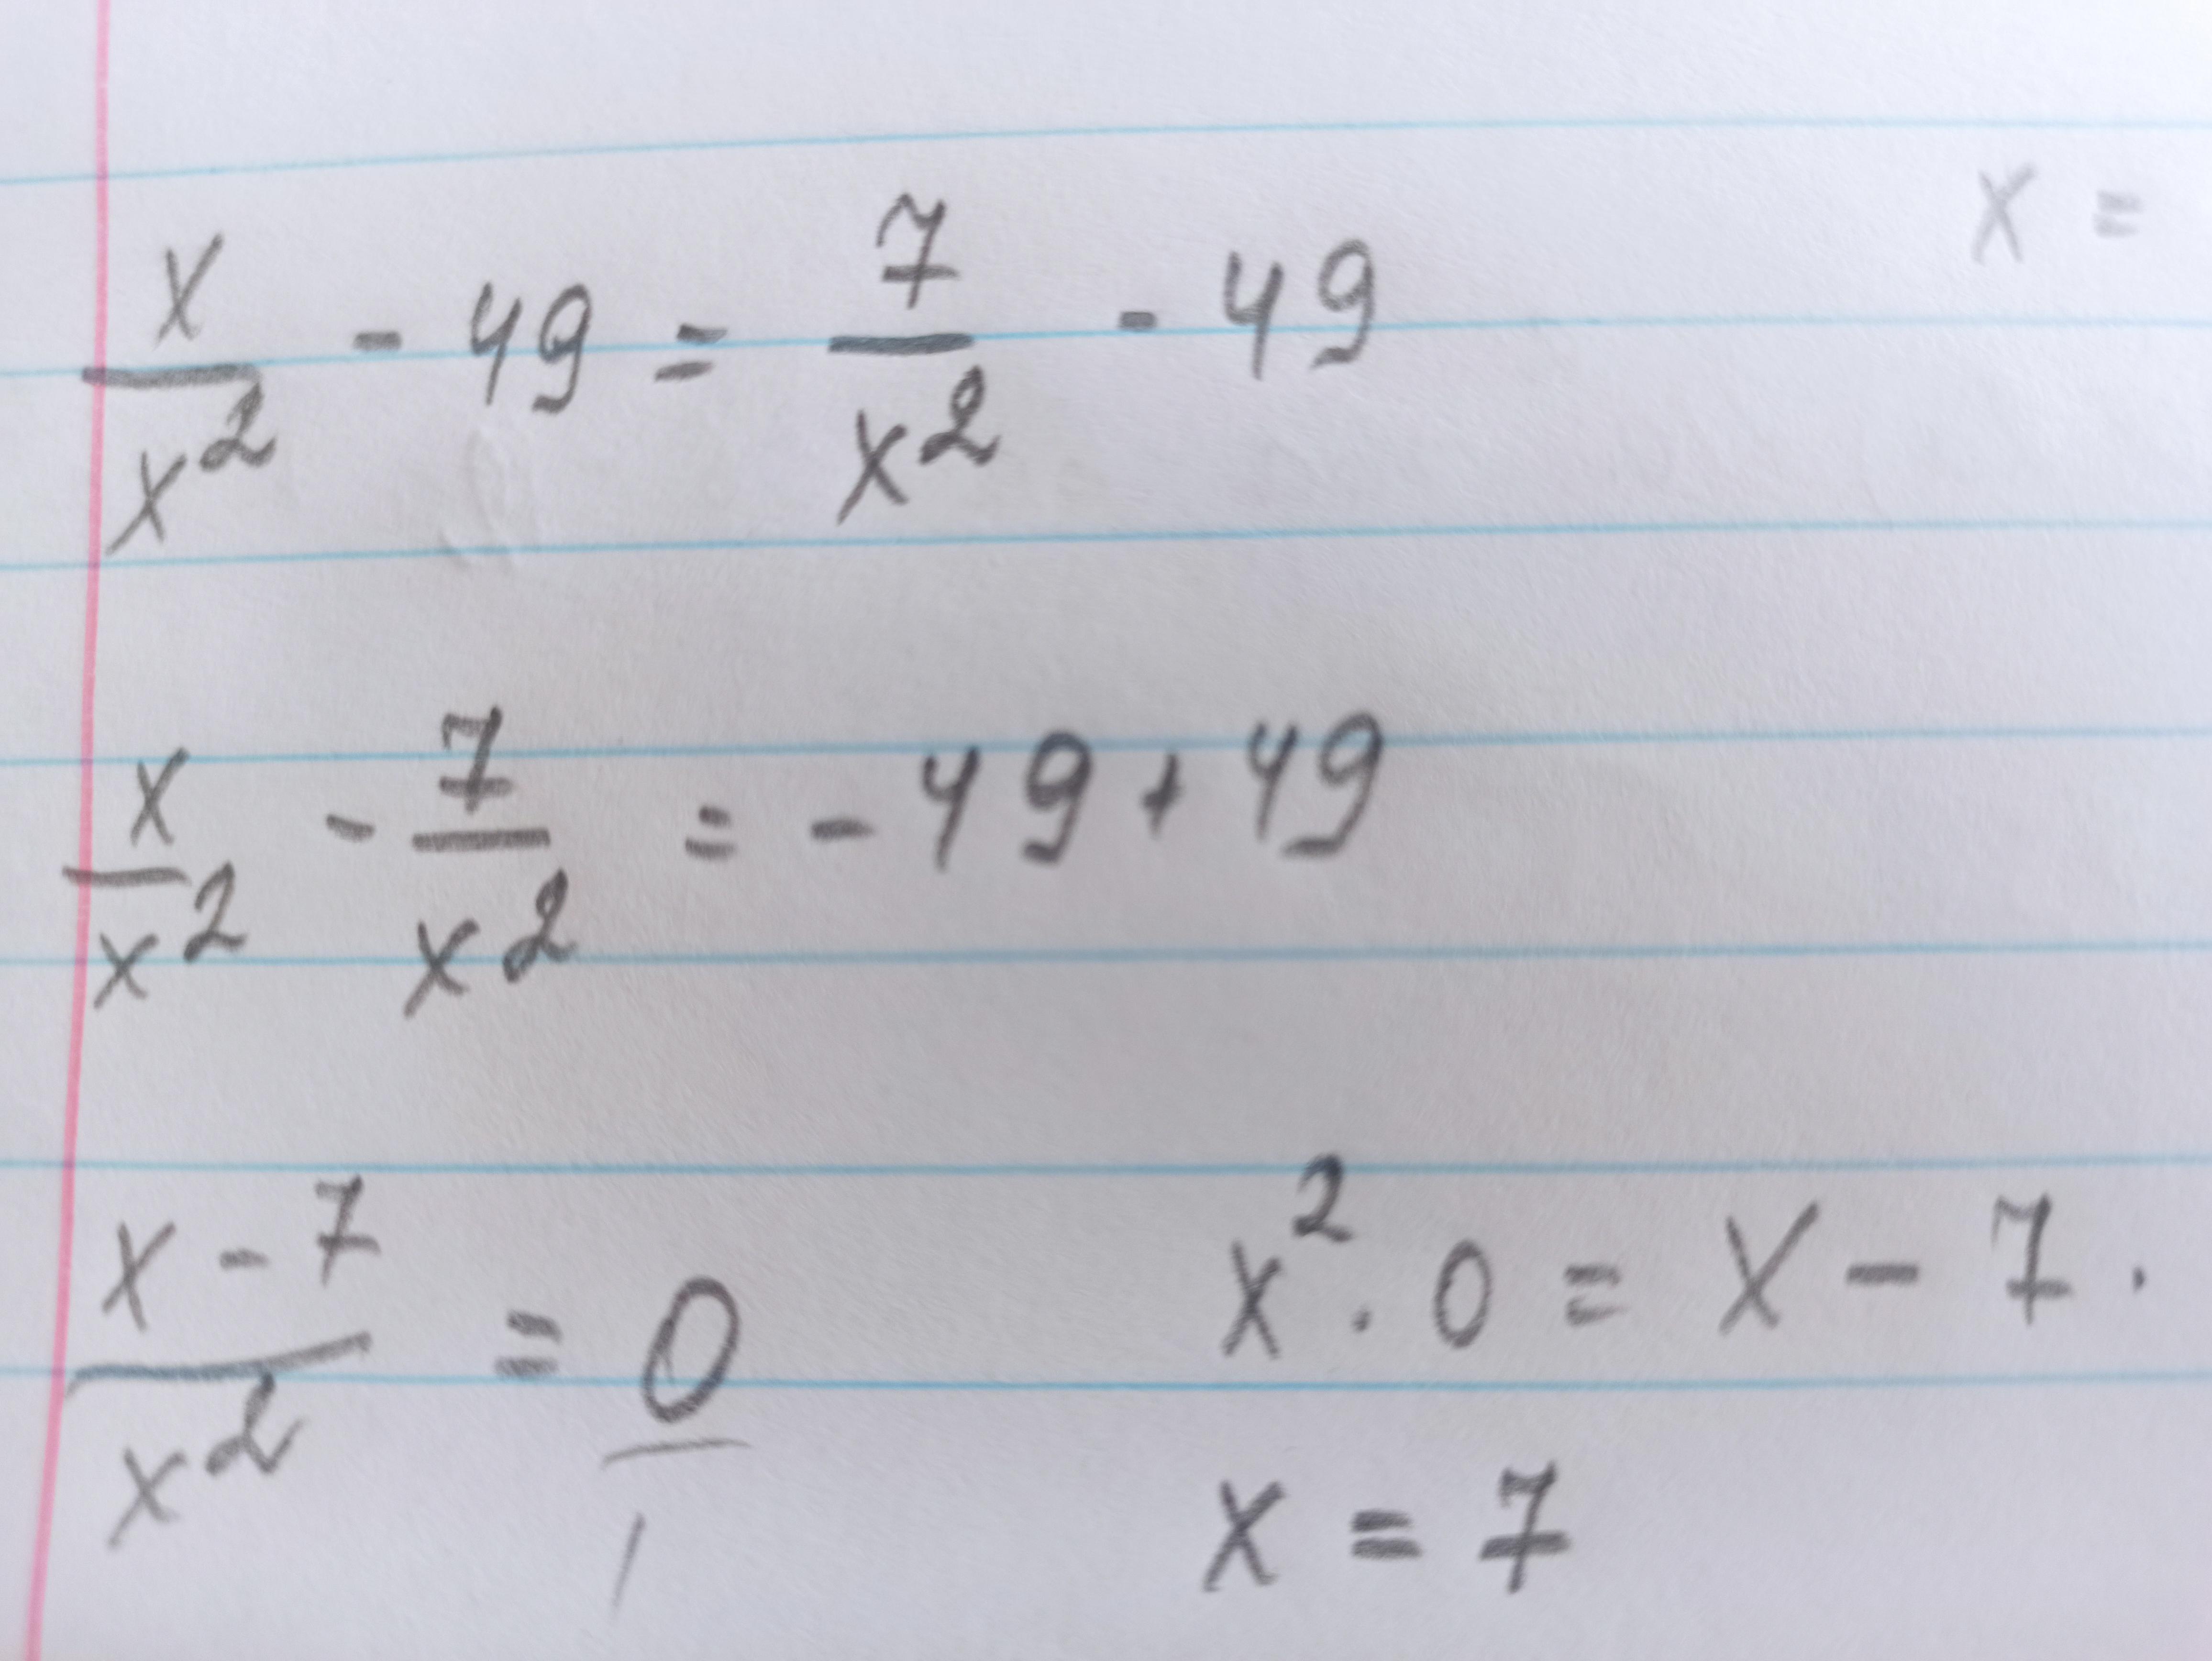 x =
x/x² - 49 = 7/x² - 49
x/x² - 7/x² = - 49 + 49
x - 7/x² = 0/1
x² · 0 = x - 7 .
x = 7